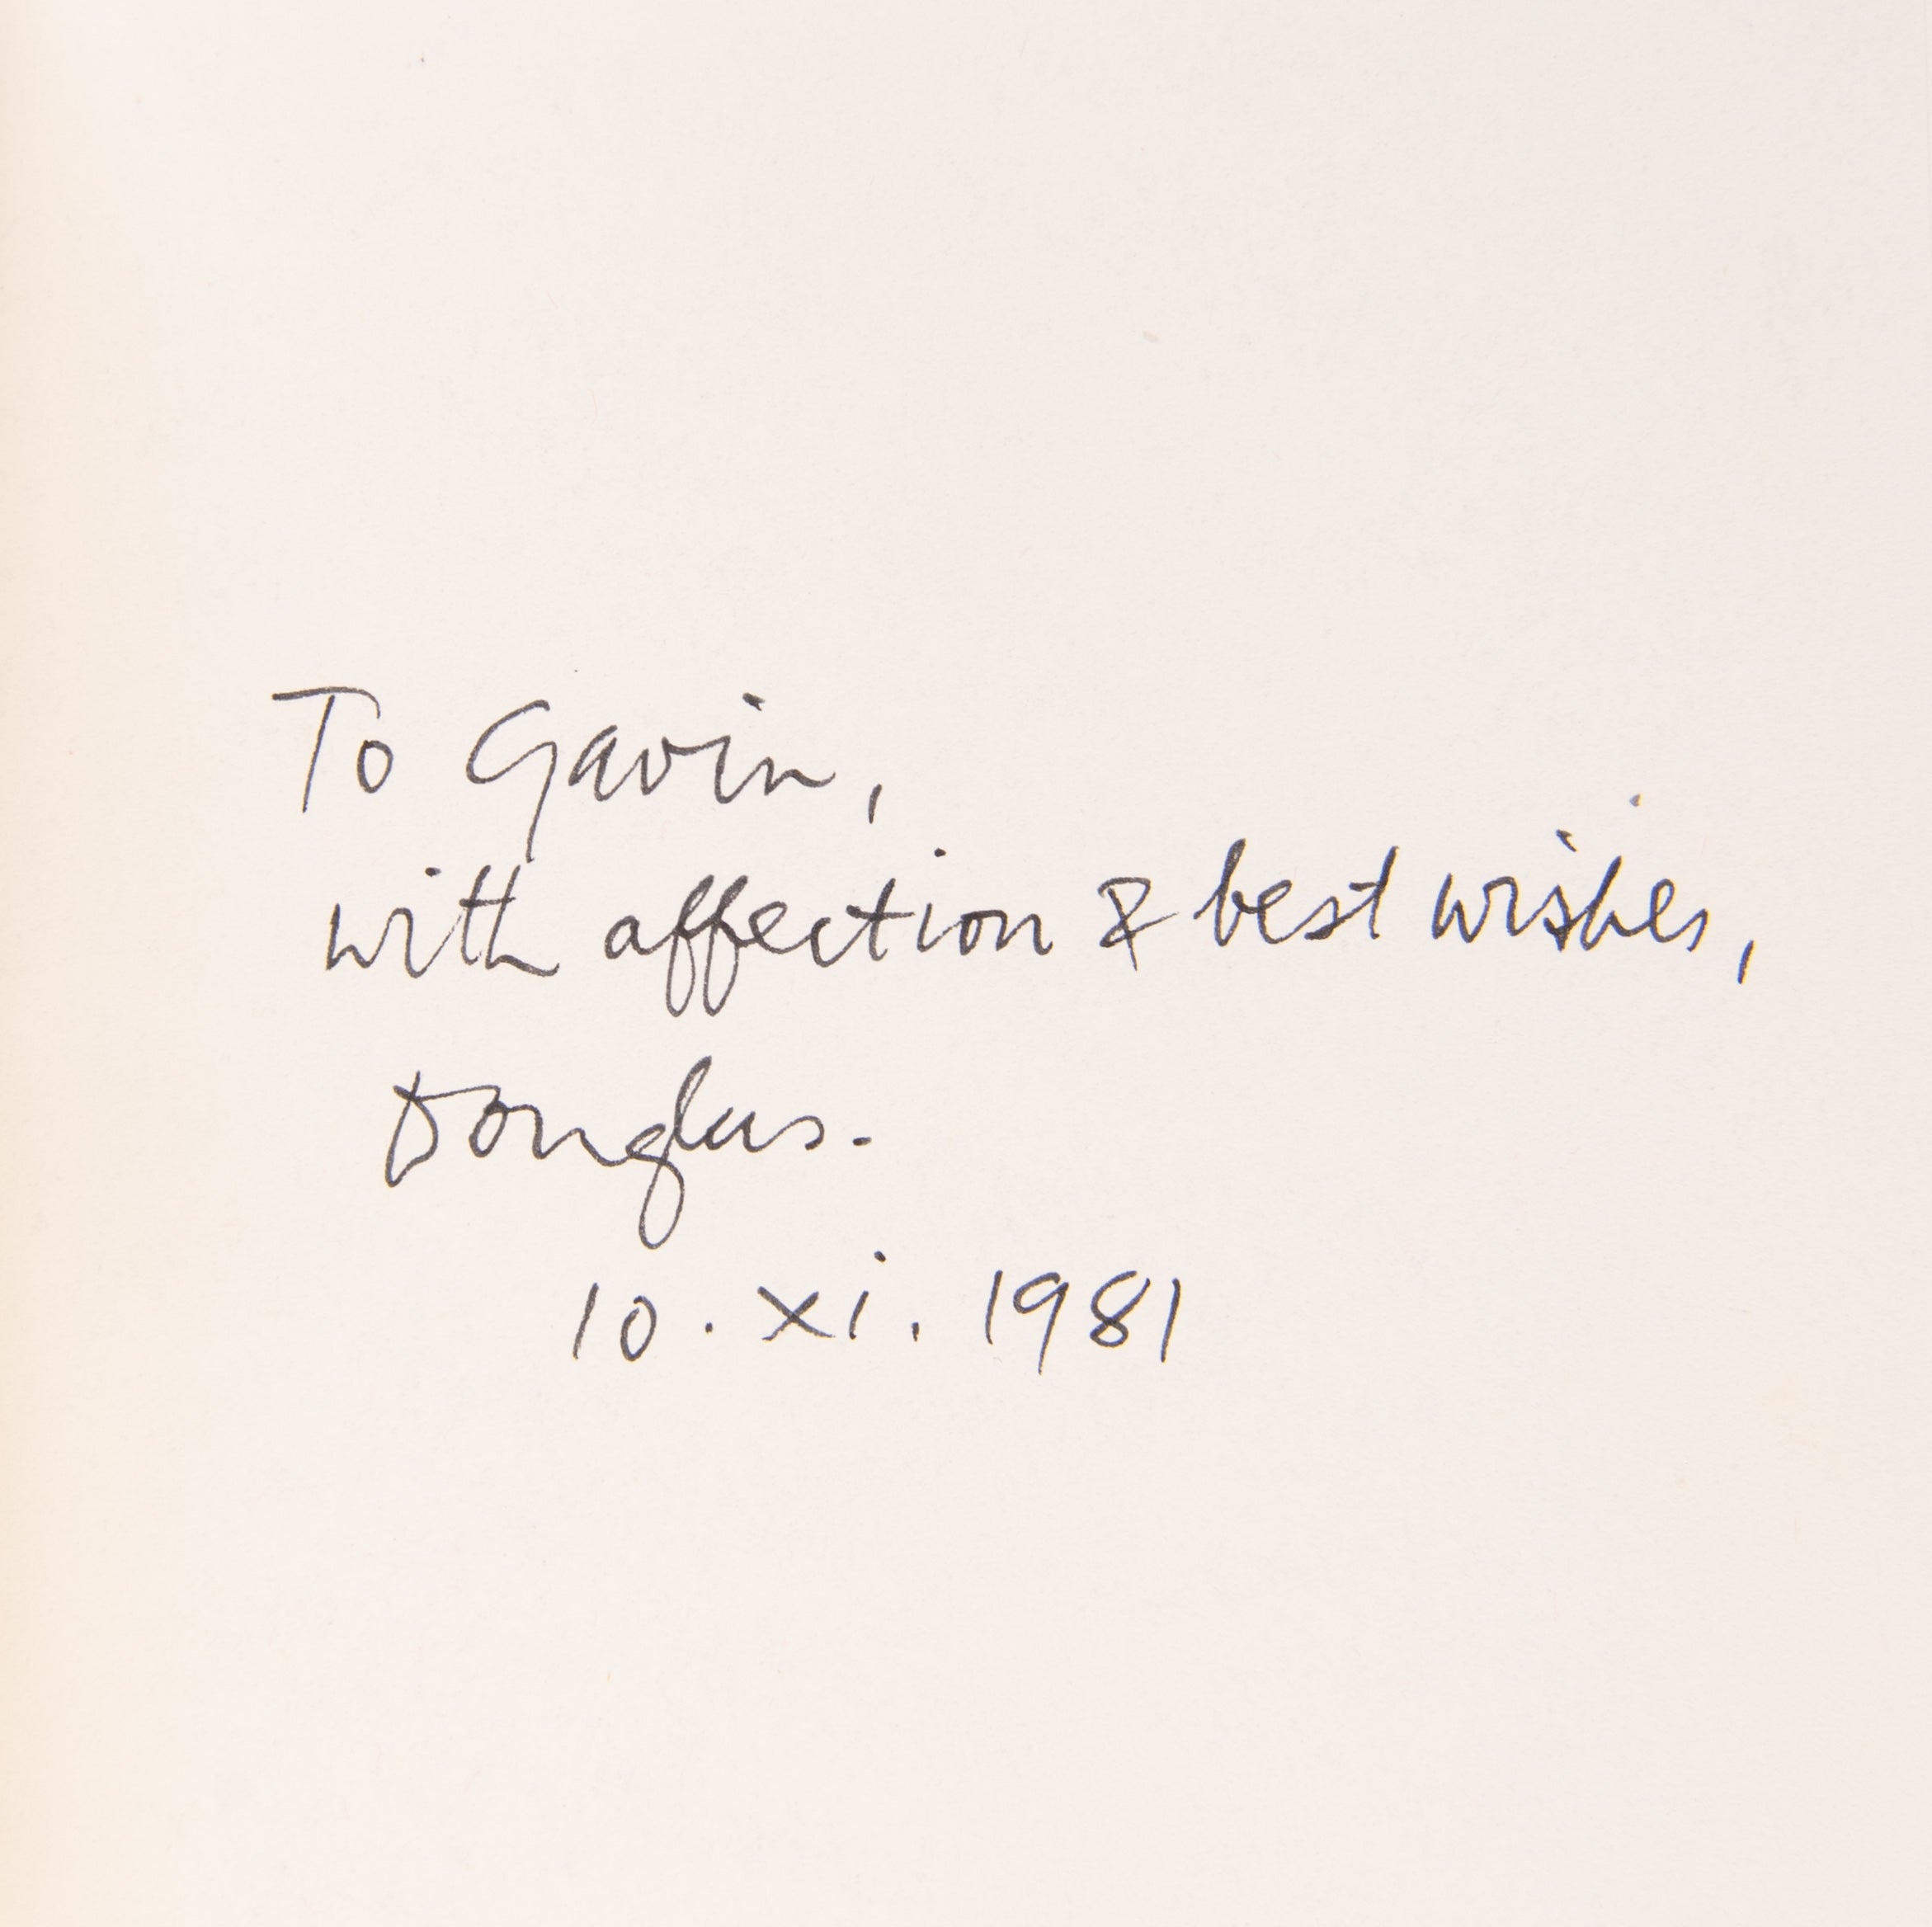 To Gavin,
with affection & best wishes,
Douglas.
10. xi. 1981